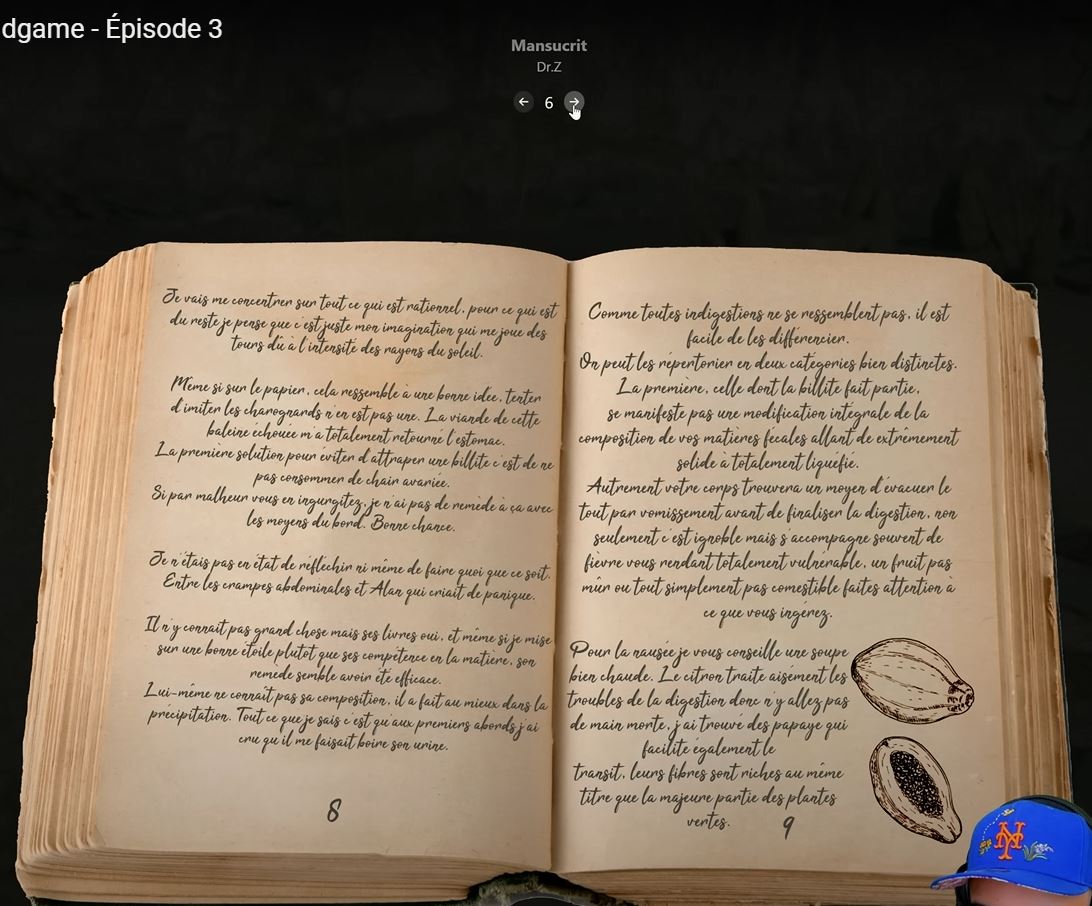 dgame - Épisode 3
Mansucrit
Dr.Z
6
Je vais me concentrer sur tout ce qui est rationnel, pour ce qui est
du reste je pense que c'est juste mon imagination qui me joue des
tours dû à l'intensité des rayons du soleil.
Même si sur le papier, cela ressemble à une bonne idée, tenter
d'imiter les charognards n'en est pas une. La viande de cette
baleine échouée m'a totalement retourné l'estomac.
La première solution pour éviter d'attraper une billite c'est de ne
pas consommer de chair avariée.
Si par malheur vous en ingurgitez, je n'ai pas de remède à ça avec
les moyens du bord. Bonne chance.
Je n'étais pas en état de réflechir ni même de faire quoi que ce soit.
Entre les crampes abdominales et Alan qui criait de panique.
Il n'y connait pas grand chose mais ses livres oui, et même si je mise
sur une bonne étoile plutot que ses compétence en la matière, son
remede semble avoir été efficace.
Lui-même ne connaît pas sa composition, il a fait au mieux dans la
précipitation. Tout ce que je sais c'est qu'aux premiers abords j'ai
cru qu'il me faisait boire son urine.
8
Comme toutes indigestions ne se ressemblent pas, il est
facile de les différencier.
On peut les répertorier en deux catégories bien distinctes.
La première, celle dont la billite fait partie,
se manifeste pas une modification intégrale de la
composition de vos matières fécales allant de extrêmement
solide à totalement liquéfie.
Autrement votre corps trouvera un moyen d'évacuer le
tout par vomissement avant de finaliser la digestion, non
seulement c'est ignoble mais s'accompagne souvent de
fièvre vous rendant totalement vulnérable, un fruit pas
mûr ou tout simplement pas comestible faites attention à
ce que vous ingérez.
Pour la nausée je vous conseille une soupe
bien chaude. Le citron traite aisément les
troubles de la digestion donc n'y allez pas
de main morte, j'ai trouvé des papaye qui
facilite également le
transit, leurs fibres sont riches au même
titre que la majeure partie des plantes
vertes.
9
NY